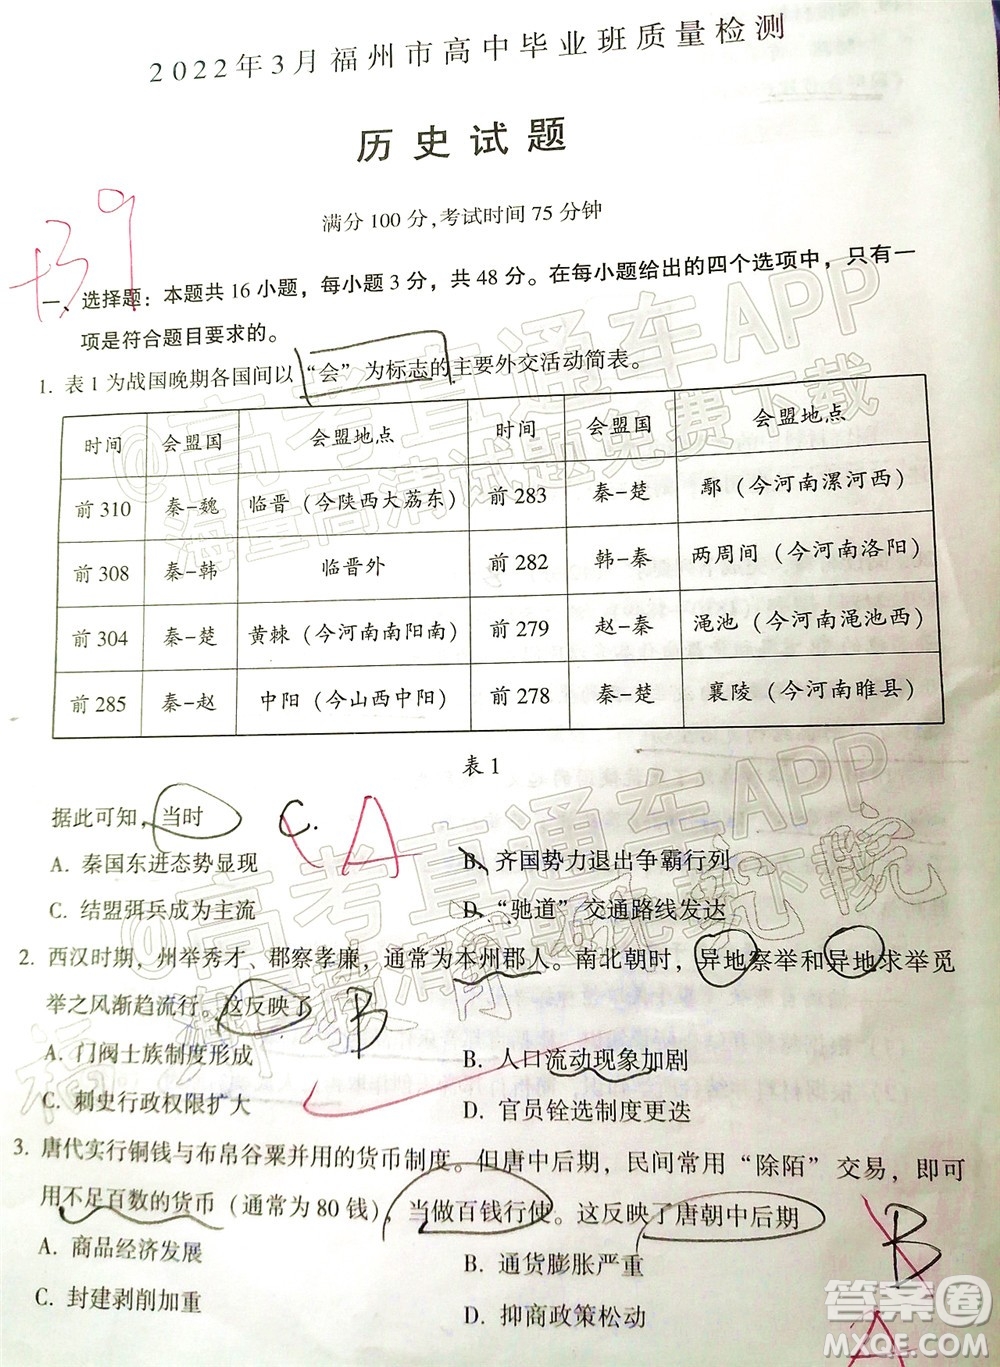 2022年3月福州市高中毕业班质量检测
历史试题
满分 100 分,考试时间 75 分钟
+39
一、选择题：本题共 16 小题，每小题 3 分，共 48 分。在每小题给出的四个选项中，只有一
项是符合题目要求的。
1. 表 1 为战国晚期各国间以“会”为标志的主要外交活动简表。
时间 会盟国 会盟地点 时间 会盟国 会盟地点
前 310 秦-魏 临晋（今陕西大荔东） 前 283 秦-楚 鄢（今河南漯河西）
前 308 秦-韩 临晋外 前 282 韩-秦 两周间（今河南洛阳）
前 304 秦-楚 黄棘（今河南南阳南） 前 279 赵-秦 渑池（今河南渑池西）
前 285 秦-赵 中阳（今山西中阳） 前 278 秦-楚 襄陵（今河南睢县）
表 1
据此可知，当时 C. A
A. 秦国东进态势显现 B. 齐国势力退出争霸行列
C. 结盟弭兵成为主流 D. “驰道”交通路线发达
2. 西汉时期，州举秀才、郡察孝廉，通常为本州郡人。南北朝时，异地察举和异地求举觅
举之风渐趋流行。这反映了 B
A. 门阀士族制度形成 B. 人口流动现象加剧
C. 刺史行政权限扩大 D. 官员铨选制度更迭
3. 唐代实行铜钱与布帛谷粟并用的货币制度。但唐中后期，民间常用“除陌”交易，即可
用不足百数的货币（通常为 80 钱），当做百钱行使。这反映了唐朝中后期
A. 商品经济发展 B. 通货膨胀严重 B
C. 封建剥削加重 D. 抑商政策松动 A
@高考直通车APP
海量高清试题免费下载
@高考直通车APP
答案圈
MXQE.COM